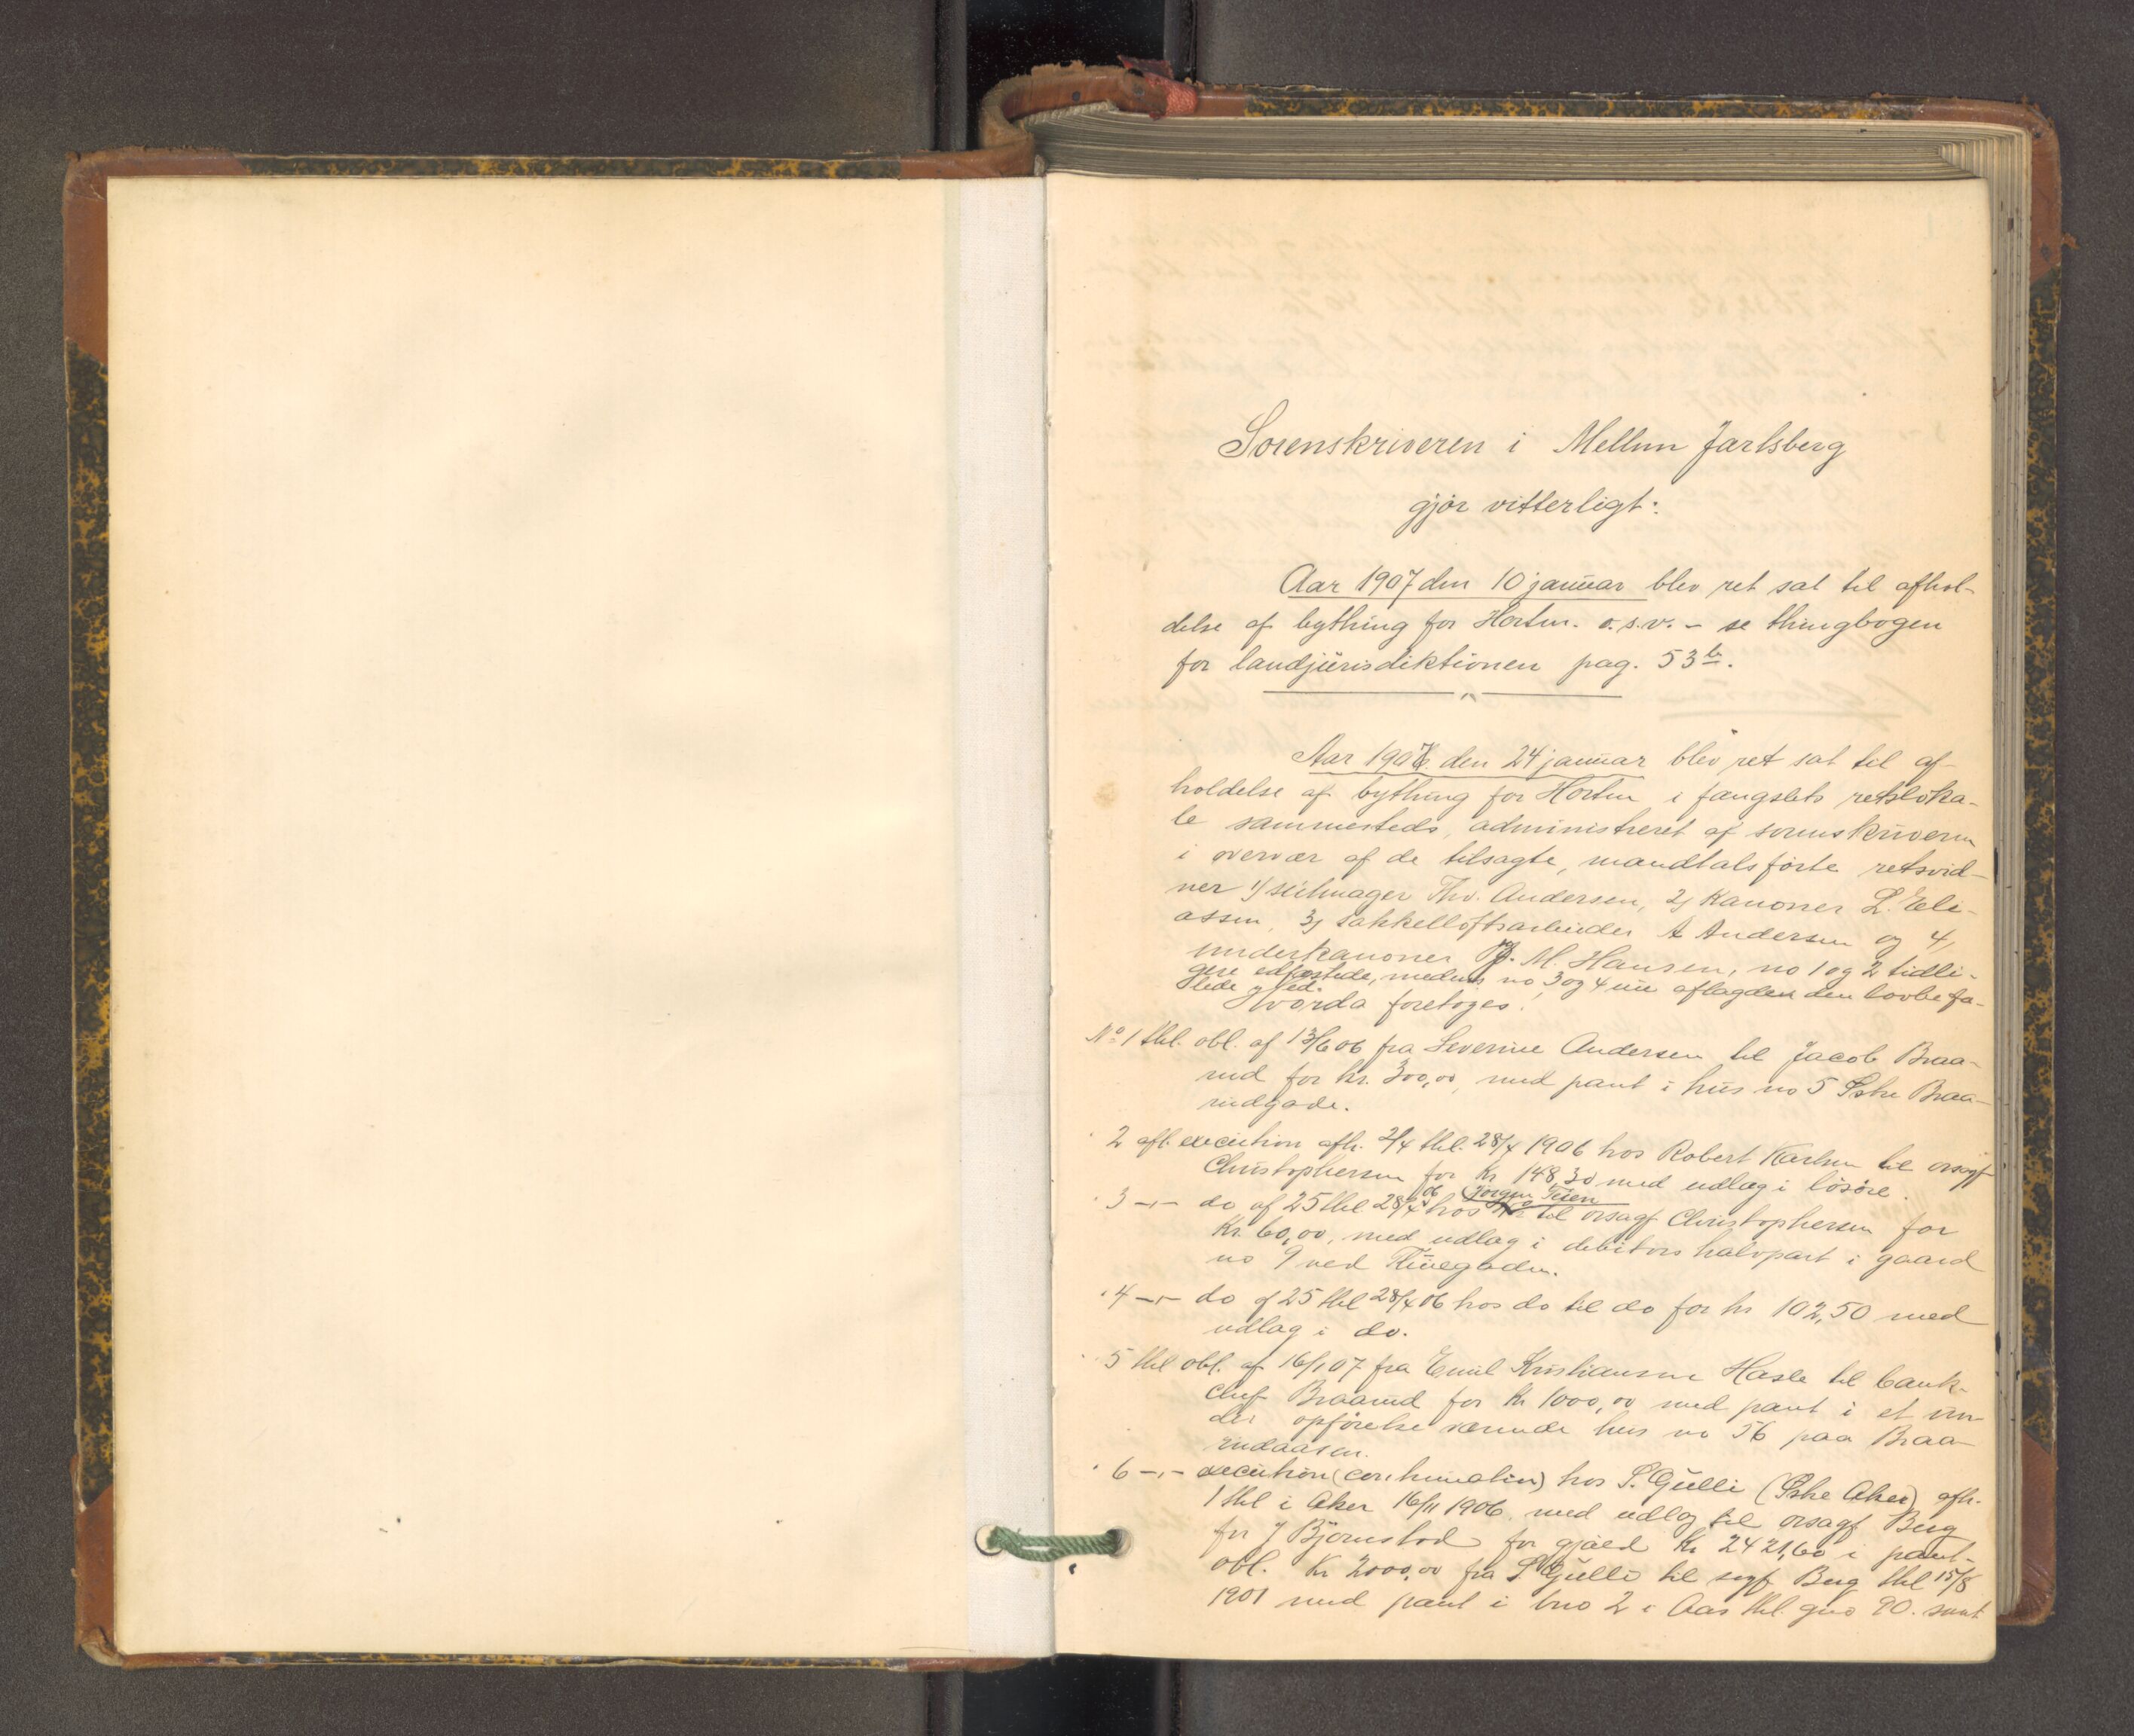 Sorenskriveren i Mellem Jarlsberg
gjör vitterligt:
Aar 1907 den 10 januar blev ret sat til afhol-
delse af bything for Horten. o.s.v. - se thingbogen
for landjurisdiktionen pag. 53b.
Aar 1907 den 24 januar blev ret sat til af
holdelse af bything for Horten i fængslets retsloka-
le sammesteds, administreret af sorenskriveren
i overvær af de tilsagte, mandtalsförte retsvid-
ner 1) seilmager Thv. Andersen, 2) Kanoner L. Eli-
assen, 3) takkelloftsarbeider A Andersen og 4)
underkanoner M. Hansen, no 1 og 2 tidli-
gere edfæstede, medens no 3 og 4 nu aflagde den lovbefa-
lede ed.
Hvorda foretoges:
No 1 thl. obl. af 13/6 06 fra Severine Andersen til Jacob Braa-
rud for kr. 300,00, med pant i hus no 5 Östre Braa-
rudgade.
2 afl. execution afh. 2/4 thl. 28/4 1906 hos Robert Karlsen til orsagf
Christophersen for Kr 148,30 med udlæg i lösöre.
3 -"- do af 25 thl 28/4 06 hos Jörgen Teien til orsagf Christophersen for
Kr. 60,00, med udlæg i debitors halvpart i gaard
no 9 ved Thuegaden.
4 -"- do af 25 thl 28/4 06 hos do til do for kr 102,50 med
udlæg i do.
5 thl obl. af 16/1 07 fra Emil Kristiansen Hasle til bank-
chef Braarud for Kr 1000,00 med pant i et un-
der opförelse værende hus no 56 paa Braa-
rudaasen.
6 -"- execution hos S. Gulli (Östre Aker) afh.
1 thl i Aker 16/11 1906, med udlæg til orsagf Berg
for J Björnstad for gjæld Kr 2421,60 i pant-
obl. Kr 2000,00 fra S Gulli til sagf Berg thl 15/8
1901 med pant i bno 2 i Aas thl gno 90. samt